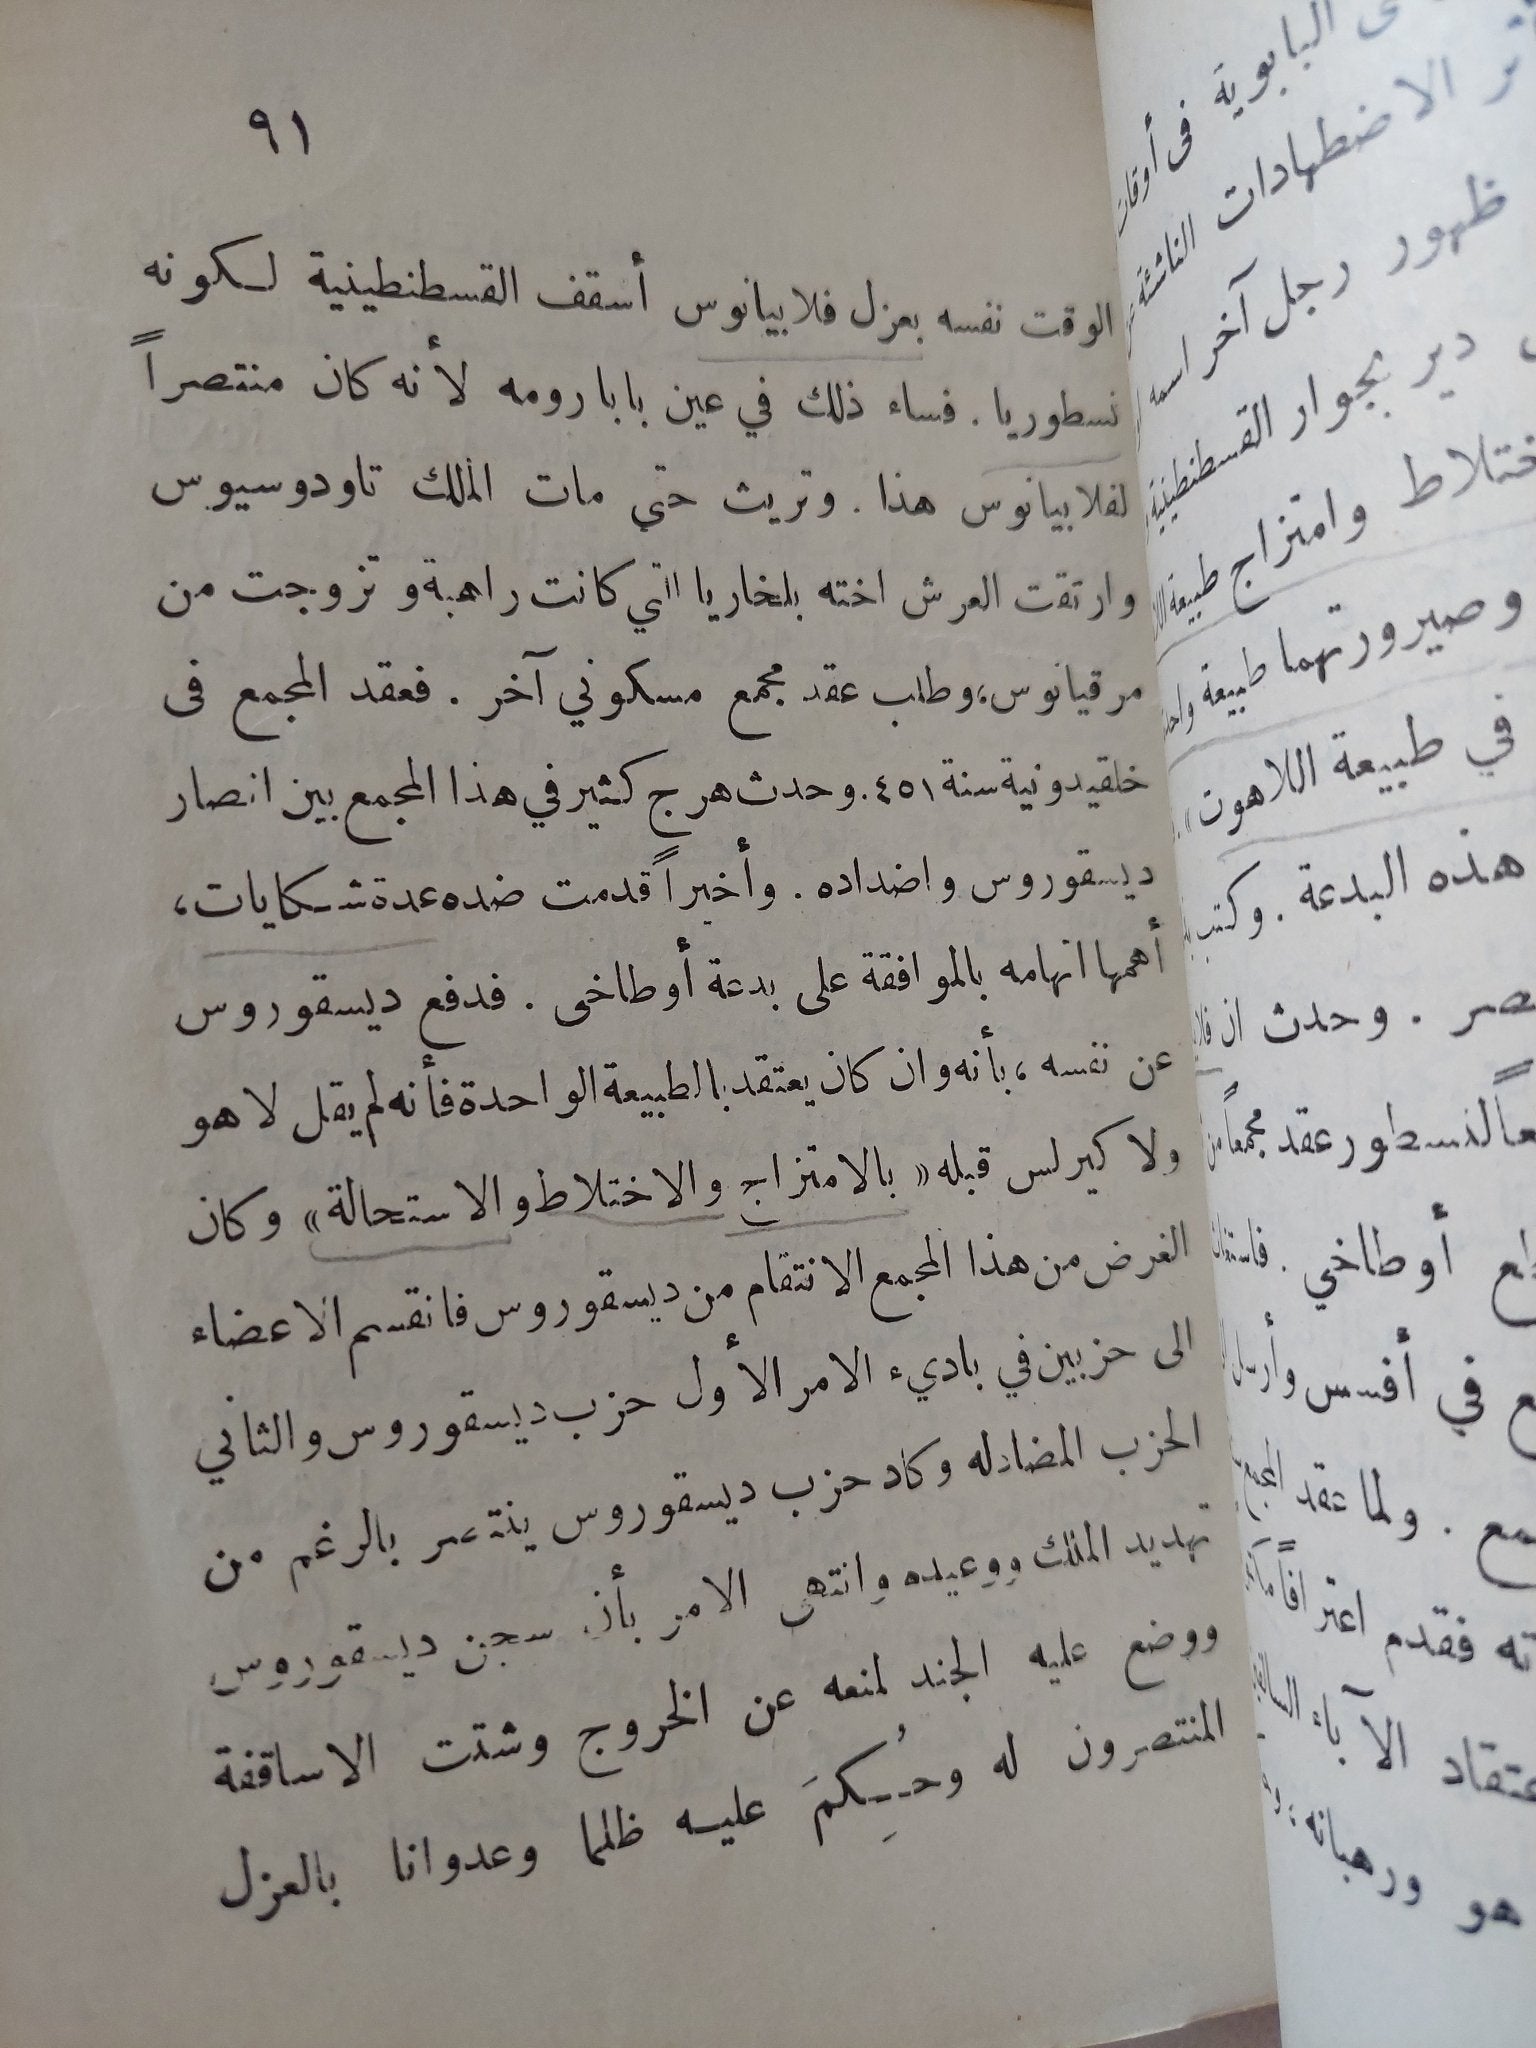 ٩١
الوقت نفسه بعزل فلابيانوس أسقف القسطنطينية لكونه
نسطوريا . فساء ذلك في عين بابا رومه لأنه كان منتصراً
لفلابيانوس هذا . وتريث حتي مات الملك تاودوسيوس
وارتقت العرش اخته بلخاريا التي كانت راهبة وتزوجت من
مرقيانوس، وطلب عقد مجمع مسكوني آخر . فعقد المجمع فى
خلقيدونية سنة ٤٥١. وحدث هرج كثير في هذا المجمع بين انصار
ديسقوروس واضداده . وأخيراً قدمت ضده عدة شكايات،
أهمها اتهامه بالموافقة على بدعة أوطاخى . فدفع ديسقوروس
عن نفسه ، بأنه وان كان يعتقد بالطبيعة الواحدة فأنه لم يقل لا هو
ولا كيرلس قبله « بالامتزاج والاختلاط والاستحالة » وكان
الغرض من هذا المجمع الانتقام من ديسقوروس فانقسم الاعضاء
الى حزبين في باديء الامر الأول حزب ديسقوروس والثاني
الحزب المضادله وكاد حزب ديسقوروس ينتصر بالرغم من
تهديد الملك ووعيده وانتهى الامر بأن سجن ديسقوروس
ووضع عليه الجند لمنعه عن الخروج وشتت الاساقفة
المنتصرون له وحُكِمَ عليه ظلما وعدوانا بالعزل
البابوية فى
الاضطهادات الناشئة
ظهور رجل آخر اسمه
دير بجوار القسطنطينية
وامتزاج طبيعة
وصيرورتهما طبيعة
في طبيعة اللاهوت » .
هذه البدعة . وكتب
. وحدث ان
لنسطور عقد مجمعاً
أوطاخي .
في أفسس وأرسل
. ولما عقد المجمع
فقدم اعترافاً
الآباء
هو ورهبانه ،